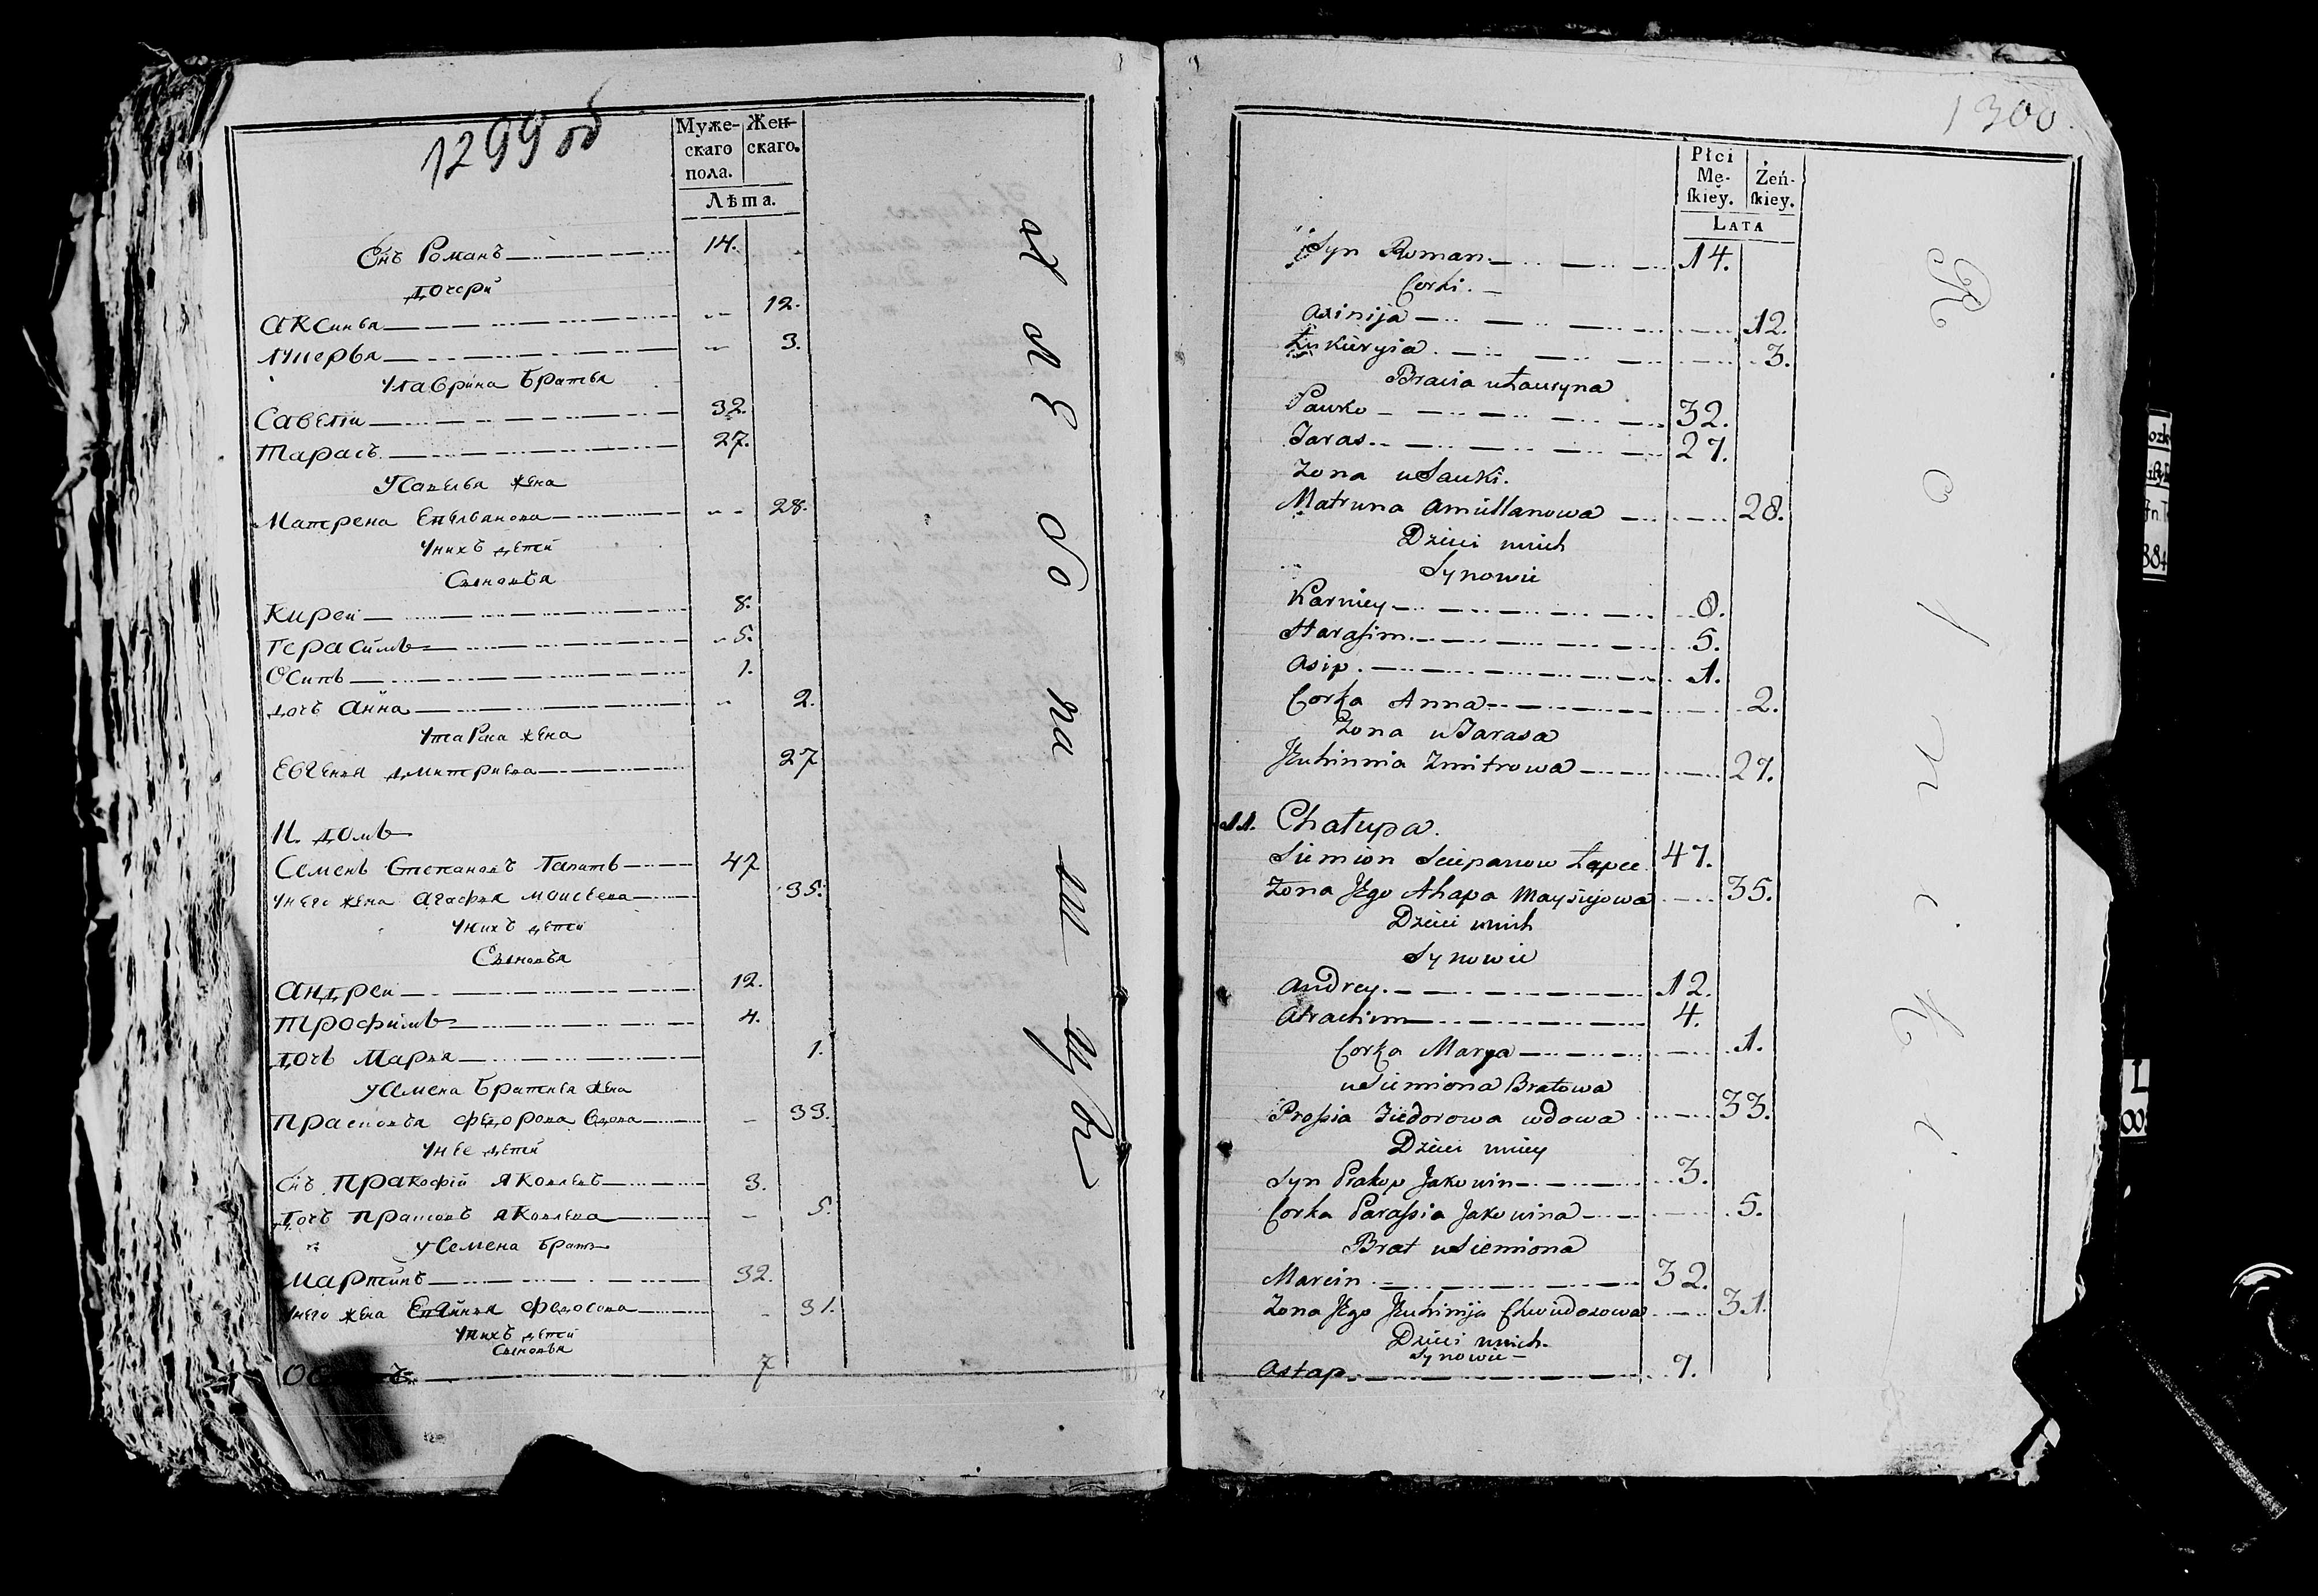 1299 об
Муже-
скаго
пола.
Жен-
скаго.
Лѣта.
Снъ Романъ 14.
дочери
Аксинья 12.
Лукерья 3.
У Лаврина братья
Савели 32.
Тарасъ 27.
У Савелья жена
Матрена Емельянова 28.
У нихъ дети
Сыновья
Кирей 8.
Герасимъ 5.
Осипъ 1.
дочь Анна 2.
У Тараса жена
Евгенья Дмитриева 27
11. домъ
Семенъ Степановъ 47
У него жена Агафья Моисеева 35.
У нихъ дети
Сыновья
Андреи 12.
Трофимъ 4.
дочь Марья 1.
У Семена братнея жена
Прасковья Федорова вдова 33.
У нее дети
Снъ Пракофiй Яковлевъ 3.
Дочь Яковлева 5.
У Семена братъ
Мартинъ 32.
У него жена Федосова 31.
У нихъ дети
Сыновья
7
1300.
Płci
Mę-
ſkiey.
Żeń-
ſkiey.
LATA
Syn Roman 14.
Corki.
Axinija 12.
Łukieryia 3.
Bracia u Łauryna
Sauko 32.
Taras 27.
Zona u Sauki.
Matruna Amiellanowa 28.
Dzieci unich
Synowie
Karniey 8.
Harasim 5.
Asip 1.
Corka Anna 2.
Zona u Tarasa
Jeuhinnia Zmitrowa 27.
11. Chałupa.
Siemion Sciepanow Łapec 47.
Zona Jego Ahapa Maysiejowa 35.
Dzieci unich
Synowie
Andrey 12.
Atrachim 4.
Corka Marya 1.
u Siemiona Bratowa
Prossia Fiedorowa wdowa 33.
Dzieci uniey
Syn Prakop Jakowin 3.
Corka Parassia Jakowina 5.
Brat u Siemiona
Marcin 32.
Zona Jego Jeuhinija Chwiedosowa 31.
Dzieci unich.
Synowie
Astap 7.
Rolniki